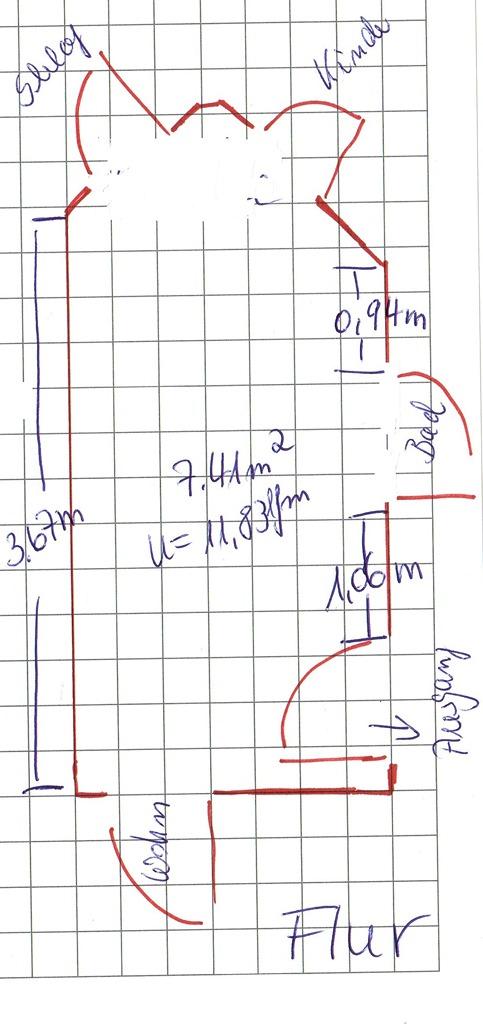 Schlaf
Kinde
0,94m
Bad
7.41m²
U= 11,83lfm
3.67m
1,06m
Ausgang
Wohn
Flur